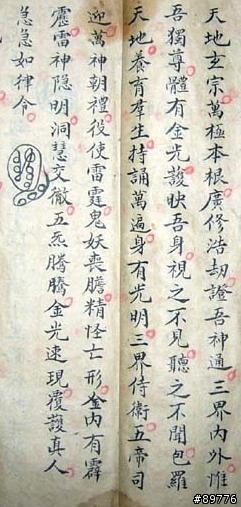 天地玄宗萬極本根廣修浩劫證吾神通三界內外惟
吾獨尊體有金光護映吾身視之不見聽之不聞包羅
天地養育羣生持誦萬遍身有光明三界侍衛五帝司
迎萬神朝禮役使雷霆鬼妖喪膽精怪亡形金內有霹
靂雷神隐明洞慧交徹五炁騰騰金光速現覆護真人
急急如律令
#89776